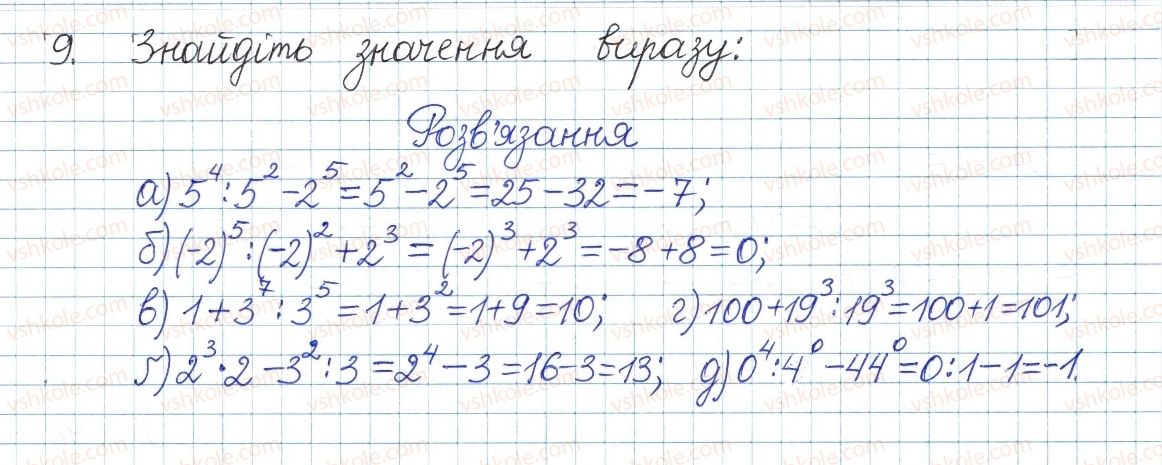 9. Знайдіть значення виразу:
Розв'язання
а) 5⁴ : 5² − 2⁵ = 5² − 2⁵ = 25 − 32 = − 7;
б) (−2)⁵ : (−2)² + 2³ = (−2)³ + 2³ = −8 + 8 = 0;
в) 1 + 3⁷ : 3⁵ = 1 + 3² = 1 + 9 = 10; г) 100 + 19³ : 19³ = 100 + 1 = 101;
ґ) 2³ · 2 − 3² : 3 = 2⁴ − 3 = 16 − 3 = 13; д) 0⁴ : 4⁰ − 44⁰ = 0 : 1 − 1 = −1.
vshkole.com